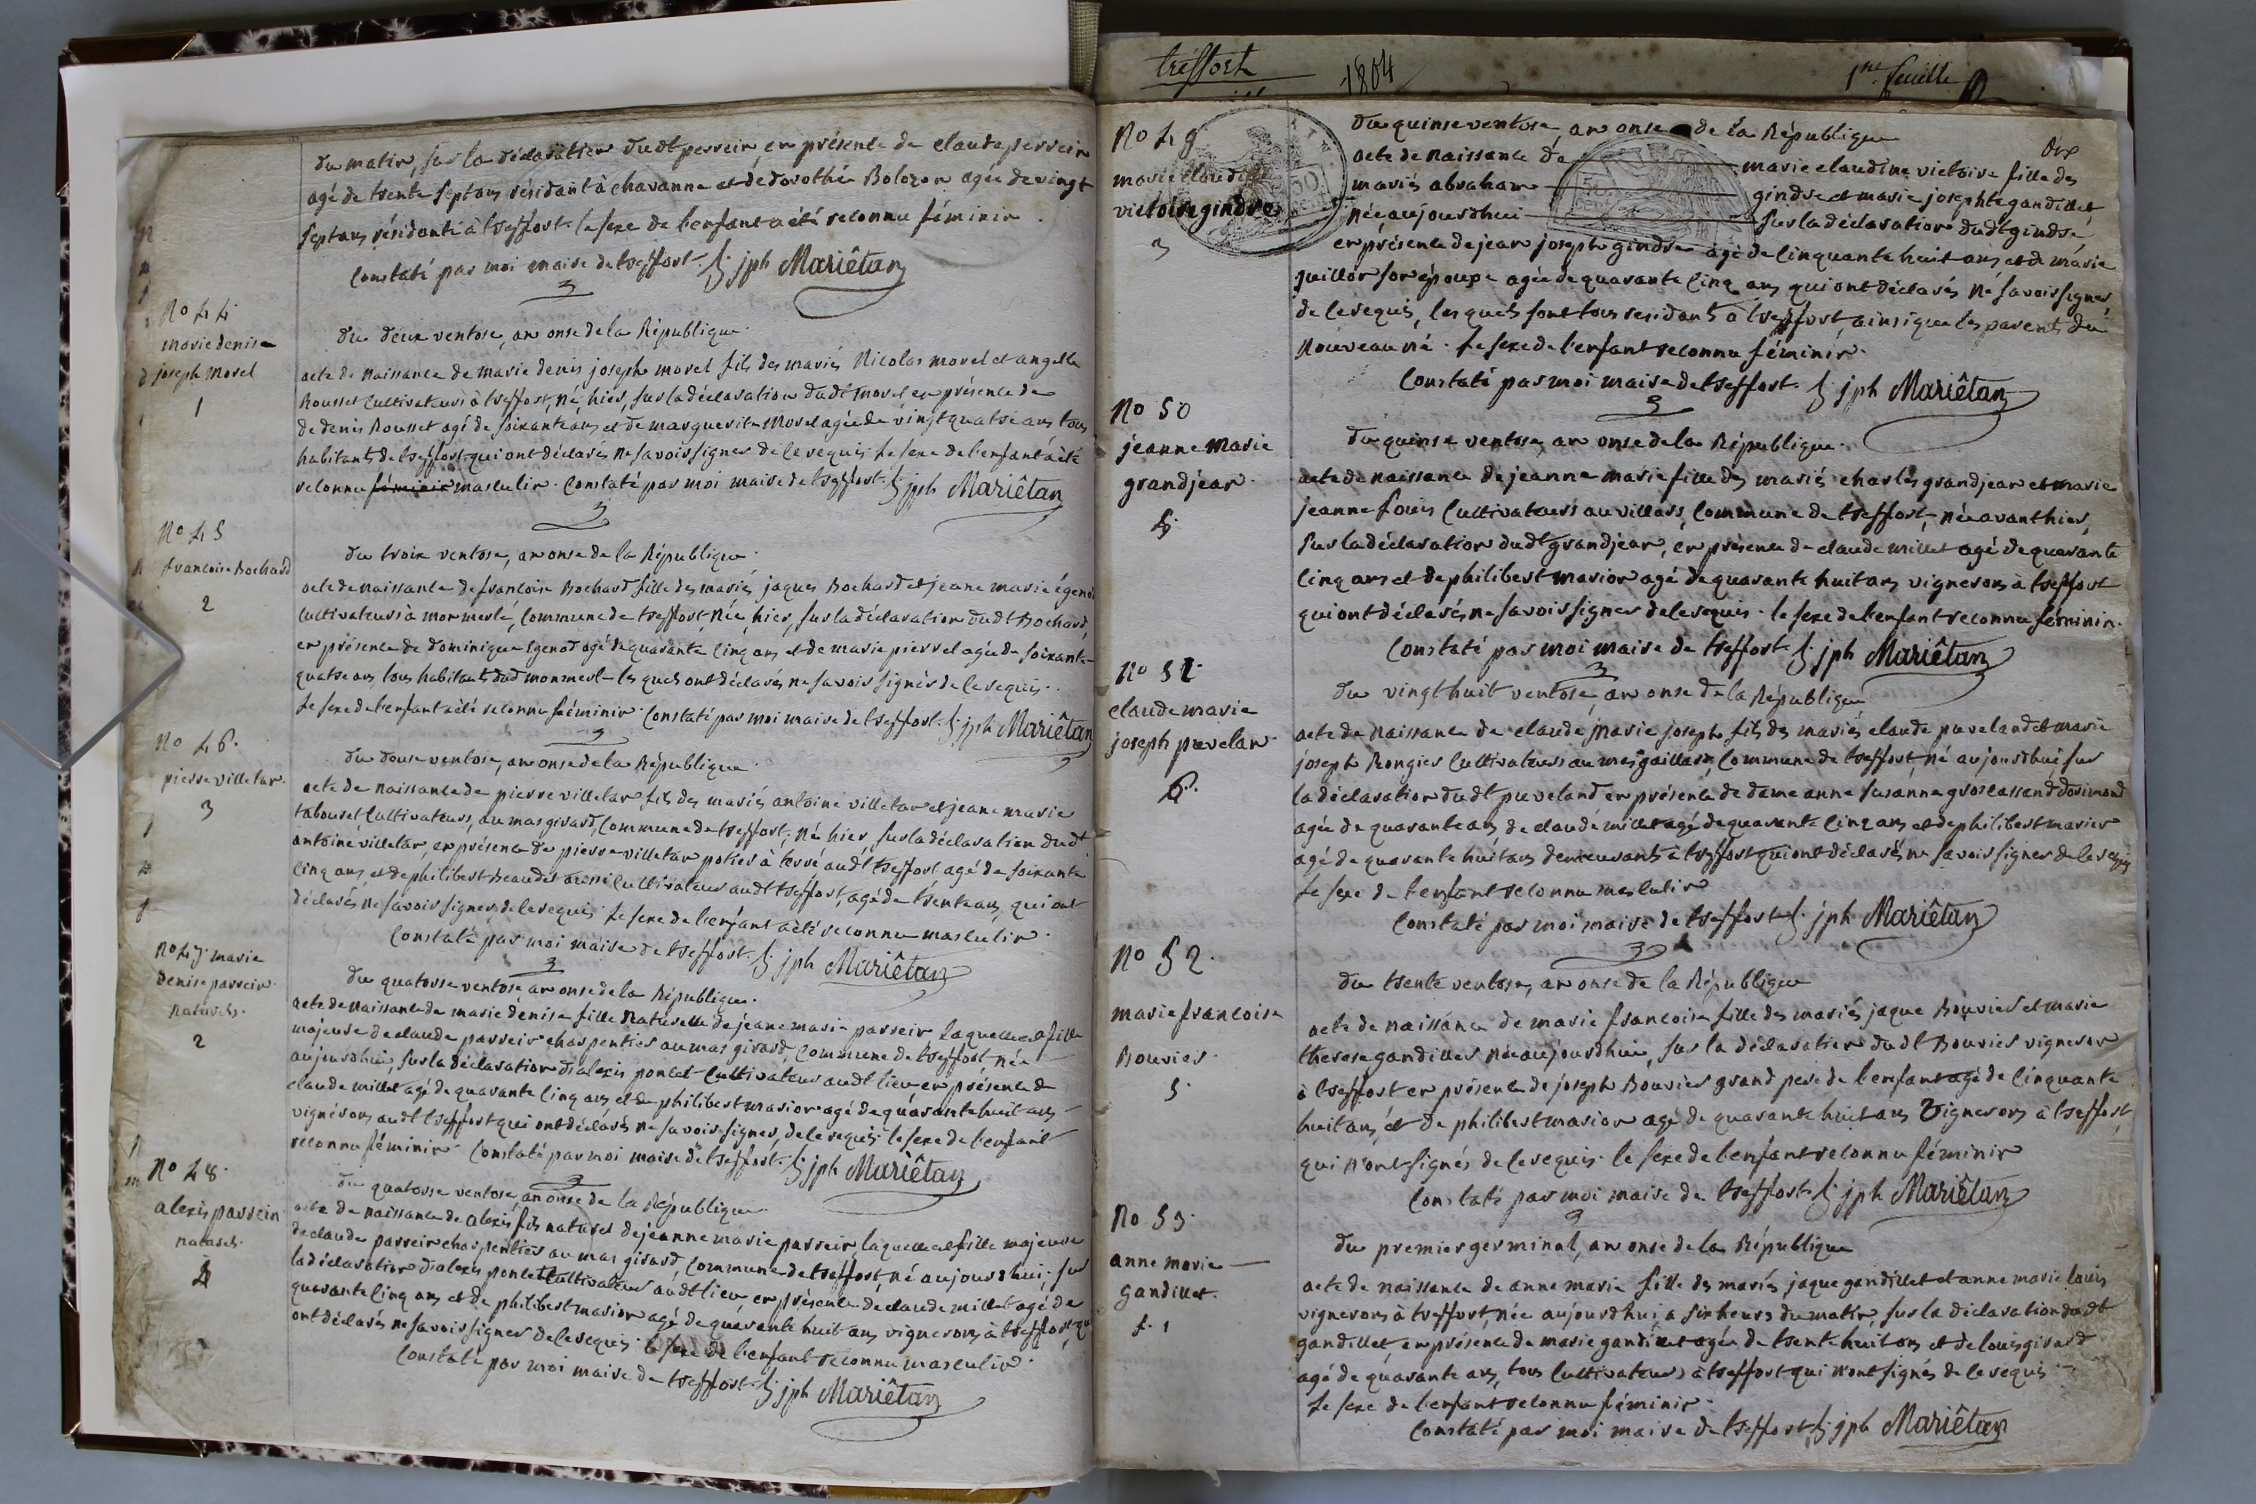 du matin, sur la déclaration dudt perrein, en présence de claude perrein
agé de trente sept ans résidant à chavanne et de dorothée Bolozon agée de vingt
sept ans résidante à treffort. le sexe de l'enfant a été reconnu féminin.
Constaté par moi maire de treffort. jph Mariêtan
No 44
marie denise
joseph morel
1
du deux ventose, an onse de la République.
acte de naissance de marie denis joseph morel fils des mariés Nicolas morel et angelle
Rousset Cultivateurs à treffort, né, hier, sur la déclaration dudt morel en présence de
de denis Rousset agé de soixante ans et de marguerite Morel agée de vingt quatre ans tous
habitants de treffort qui ont déclarés ne savoir signer de ce requis. Le sexe de l'enfant a été
reconnu féminin masculin. Constaté par moi maire de treffort. jph Mariêtan
No 45
francoise Bochard
2
du troix ventose, an onse de la République.
acte de naissance de francoise Bochard fille des mariés jaques Bochard et jeane marie égenod
Cultivateurs à mormerle, Commune de treffort, Née, hier, sur la déclaration dudt Bochard,
en présence de dominique Egenod agé de quarante cinq ans et de marie pierrel agée de soixante
quatre ans tous habitant dud monmerle les quels ont déclarés ne savoir signer de ce requis.
Le sexe de l'enfant a été reconnu féminin. Constaté par moi maire de treffort. jph Mariêtan
No 46.
pierre villetar.
3
du douse ventose, an onse de la République.
acte de naissance de pierre villetar fils des mariés antoine villetar et jeane marie
tabouret Cultivateurs, au mas girard, Commune de treffort. Né hier, sur la déclaration dudt
antoine villetar, en présence de pierre villetar potier à terre audt treffort agé de soixante
cinq ans, et de philibert Beaudet aussi Cultivateur audt treffort, agé de trente ans, qui ont
déclarés ne savoir signer, de ce requis. Le sexe de l'enfant a été reconnu masculin.
Constaté par moi maire de treffort. jph Mariêtan
No 47. marie
denise parrein.
naturels.
2
du quatorse ventose an onse de la République.
acte de naissance de marie denise fille Naturelle de jeane marie parrein laquelle est fille
majeure de claude parrein charpentier au mas girard, Commune de treffort, née
aujourdhui, sur la déclaration d'alexis poncet Cultivateur audt lieu en présence de
claude millet agé de quarante cinq ans et de philibert marion agé de quarante huit ans
vignerons audt treffort qui ont déclarés ne savoir signer, de ce requis. le sexe de l'enfant
reconnu féminin. Constaté par moi maire de treffort. jph Mariêtan
No 48.
alexis parrein
naturels.
du quatorse ventose, an onse de la République.
acte de naissance de alexis fils naturel de jeanne marie parrein, laquelle est fille majeure
de claude parrein charpentier au mas girard, Commune de treffort, né aujourdhui, sur
la déclaration d'alexis poncet Cultivateur audt lieu, en présence de claude millet agé de
quarante cinq ans et de philibert marion agé de quarante huit ans vignerons à treffort, qui
ont déclarés ne savoir signer de ce requis. le sexe de l'enfant reconnu masculin.
Constaté par moi maire de treffort. jph Mariêtan
tréffort
1804
1re feuille
dix
No 49
marie claudine
victoire gindre
3
du quinse ventose, an onse de la République
acte de naissance de marie claudine victoire fille des
mariés abraham gindre et marie josephte gandillet
née aujourdhui sur la déclaration dudt gindre,
en présence de jean joseph gindre agé de cinquante huit ans et de marie
guillon son épouse agée de quarante cinq ans qui ont déclarés ne savoir signer,
de ce requis, les quels sont tous residents à treffort, ainsi que les parents du
Nouveau né. Le sexe de l'enfant reconnu féminin.
Constaté par moi maire de treffort. jph Mariêtan
No 50
jeanne Marie
grandjean.
du quinse ventose, an onse de la République.
acte de naissance de jeanne marie fille des mariés charles grandjean et marie
jeanne Louis Cultivateurs au villars, Commune de treffort, née avant hier,
sur la déclaration dudt grandjean, en présence de claude millet agé de quarante
cinq ans et de philibert marion agé de quarante huit ans vignerons à treffort
qui ont déclarés ne savoir signer de ce requis. le sexe de l'enfant reconnu féminin.
Constaté par moi maire de treffort. jph Mariêtan
No 51.
claude marie
joseph puvelan.
6.
du vingt huit ventose, an onse de la République
acte de Naissance de claude Marie joseph fils des mariés claude puveland et marie
joseph Rongier Cultivateurs au mas gaillard, Commune de treffort, né aujourdhui sur
la déclaration dudt puveland en présence de dame anne susanne groscassand dorimond
agée de quarante ans, de claude millet agé de quarante cinq ans et de philibert marion
agé de quarante huit ans demeurants à treffort qui ont déclarés ne savoir signer de ce requis
Le sexe de l'enfant reconnu masculin
Constaté par moi maire de treffort. jph Mariêtan
No 52.
marie francoise
Bouvier.
5.
du trente ventose, an onse de la République
acte de naissance de marie francoise fille des mariés jaque Bouvier et marie
therese gandillet née aujourdhui, sur la déclaration dudt Bouvier vigneron
à treffort en présence de joseph Bouvier grand pere de l'enfant agé de cinquante
huit ans, et de philibert marion agé de quarante huit ans Vignerons à treffort,
qui n'ont signés de ce requis. le sexe de l'enfant reconnu féminin
Constaté par moi maire de treffort. jph Mariêtan
No 53.
anne marie
gandillet.
du premier germinal, an onse de la République
acte de naissance de anne marie fille des mariés jaque gandillet et anne marie louis
vignerons à treffort, née aujourdhui, a six heurs du matin, sur la déclaration dudt
gandillet, en présence de marie gandillet agée de trente huit ans et de louis girard
agé de quarante ans, tous Cultivateurs à treffort qui n'ont signés de ce requis.
Le sexe de l'enfant reconnu féminin.
Constaté par moi maire de treffort. jph Mariêtan